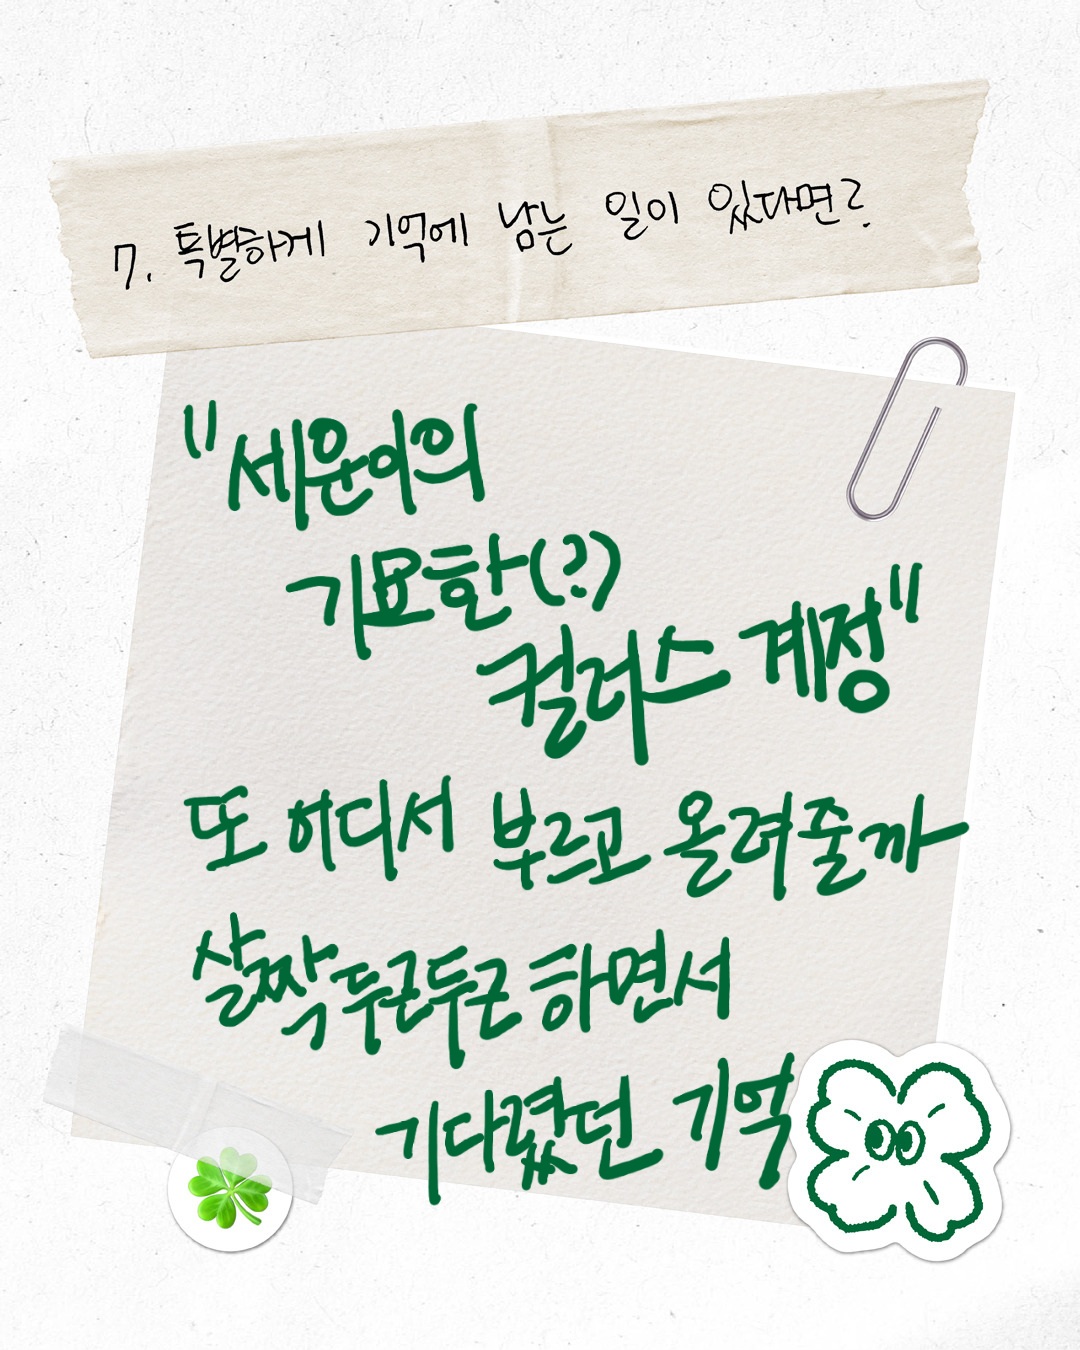 7. 특별하게 기억에 남는 일이 있다면?
"세윤이의
기묘한(?)
컬러스 계정"
또 어디서 부르고 올려줄까
살짝 두근두근 하면서
기다렸던 기억